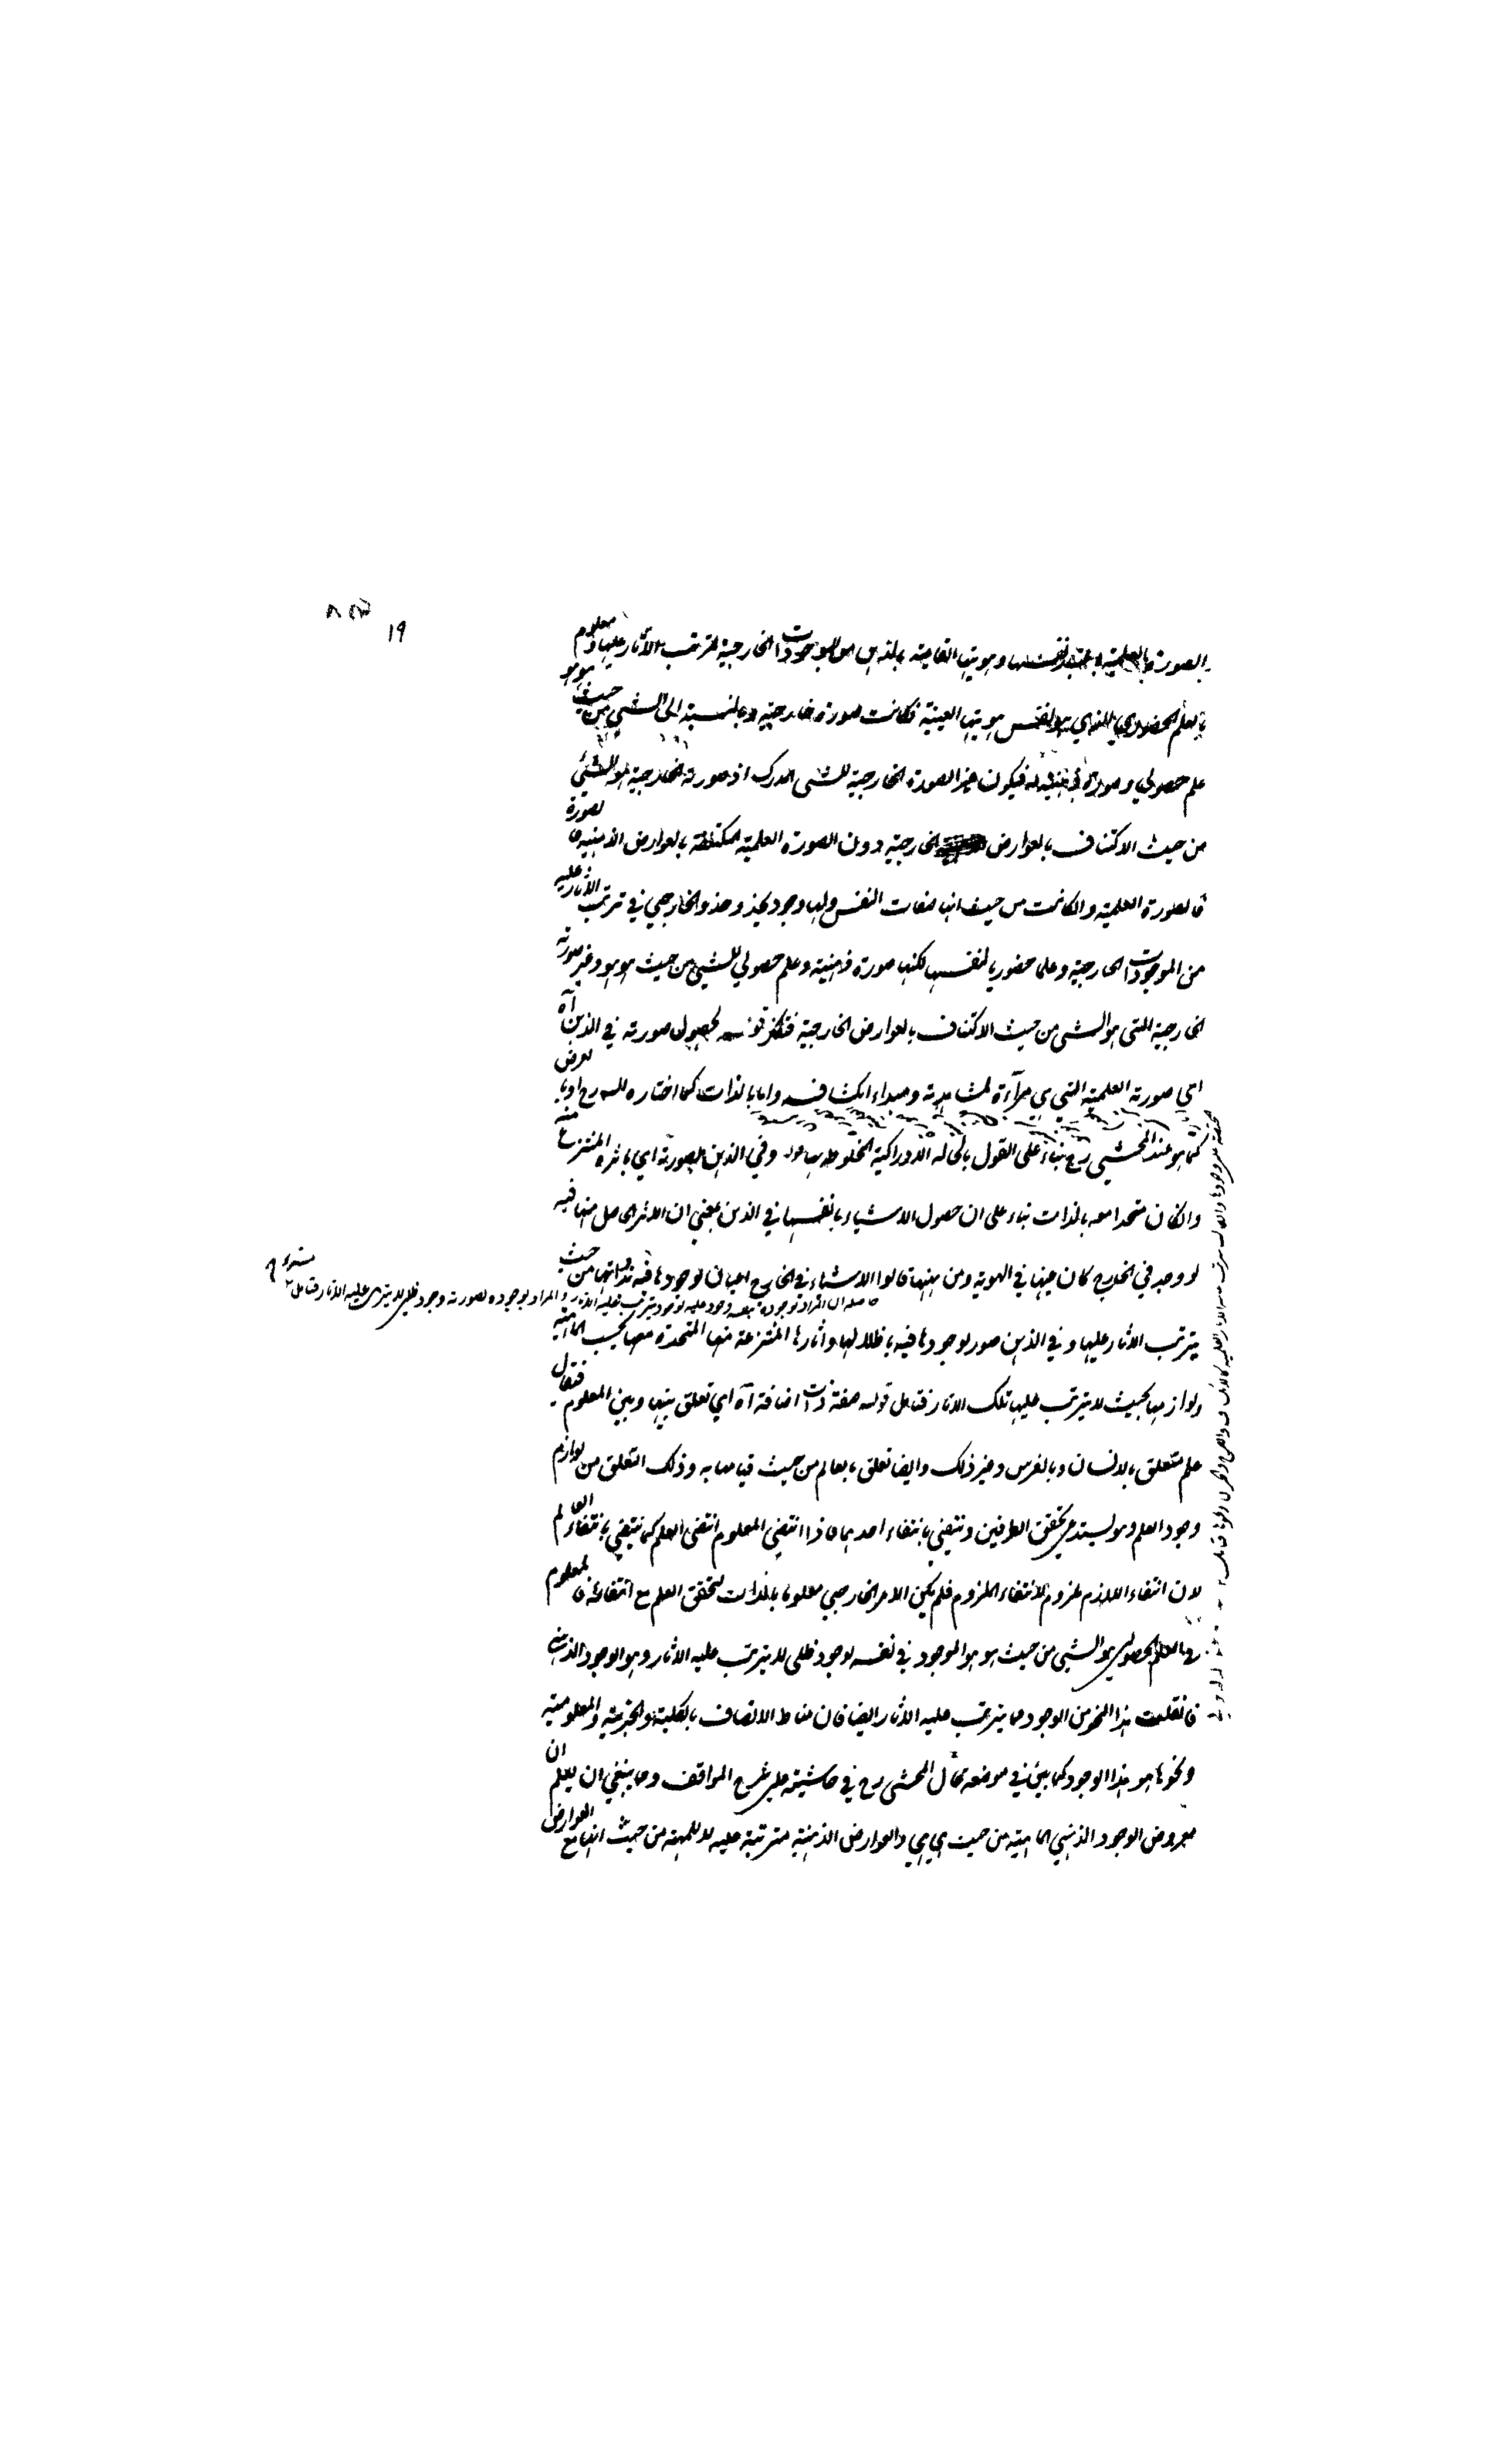 ١٩
الصورة العلمية باعتبار نفسها وهويتها القائمة بالذهن من الموجودات الخارجية لترتب الآثار عليها ومعلوم
بالعلم الحضوري الذي هو نفس هويتها العينية فكانت صورة خارجية وبالنسبة الى الشيء من حيث هو هو
علم حصولي وصورة ذهنية له فيكون غير الصورة الخارجية للشيء المدرك اذ صورته الخارجية هو الشيء
من حيث الاكتناف بالعوارض الخارجية دون الصورة العلمية المكتنفة بالعوارض الذهنية
فالصورة العلمية وان كانت من حيث انها صفات النفس ولها وجود يحذو حذو الخارجي في ترتب الآثار عليه
من الموجودات الخارجية وعلما حضوريا لنفسها لكنها صورة ذهنية وعلم حصولي للشيء من حيث هو هو وغير صورته
الخارجية التي هو الشيء من حيث الاكتناف بالعوارض الخارجية فتفكر قوله لحصول صورته في الذهن آه
اي صورته العلمية التي هي مرآة لمشاهدته ومبداء انكشافه واما بالذات كما اختاره رح او بالعرض
كما هو عند المحشي رح بناء على القول بالحالة الادراكية المخلوطة بها قوله وفي الذهن بصورته اي باثره المنتزع منه
وان كان متحدا معه بالذات بناء على ان حصول الاشياء بانفسها في الذهن بمعنى ان الاثر الحاصل منها فيه
لو وجد في الخارج كان عينها في الهوية ومن ههنا قالوا الاشياء في الخارج اعيان لوجودها فيه بذواتها من حيث
حاصله ان المراد بوجوده بنفسه وجود يترتب عليه الآثار والمراد بوجوده بصورته وجود ظلي لا يترتب عليه الآثار فتامل
يترتب الآثار عليها وفي الذهن صور لوجودها فيه باظلالها وآثارها المنتزعة منها المتحدة معها بحسب الماهية
ولوازمها بحيث لا يترتب عليها تلك الآثار فتامل قوله صفة ذات اضافة آه اي تعلق بينها وبين المعلوم فيقال
علم متعلق بالانسان وبالفرس وغير ذلك وايضا تعلق بعالم من حيث قيامها به وذلك التعلق من لوازم
وجود العلم وهو يستدعي تحقق الطرفين وينتفي بانتفاء احدهما فاذا انتفى المعلوم انتفى العلم كما ينتفي بانتفاء العالم
لان انتفاء اللازم ملزوم لانتفاء الملزوم فلم يكن الامر الخارجي معلوما بالذات لتحقق العلم مع انتفائه فالمعلوم
في العلم الحصولي هو الشيء من حيث هو هو الموجود في نفسه لوجود ظلي لا يترتب عليه الآثار وهو الوجود الذهني
فان قلت هذا النحو من الوجود مما يترتب عليه الآثار ايضا فان مناط الاتصاف بالكلية والجزئية والمعلومية
ونحوها هو هذا الوجود كما بين في موضعه قال المحشي رح في حاشيته على شرح المواقف ومما ينبغي ان يعلم ان
معروض الوجود الذهني الماهية من حيث هي هي والعوارض الذهنية مترتبة عليه لا للمهية من حيث انها مع العوارض